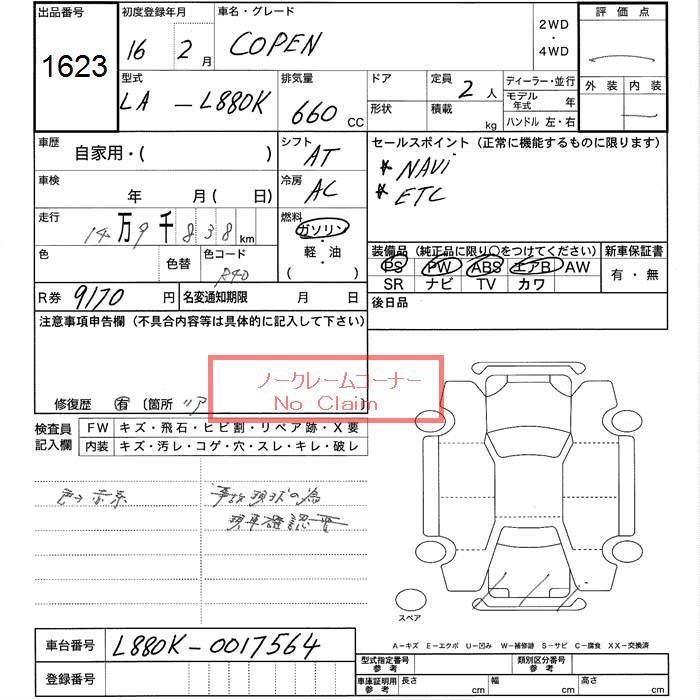 出品番号 初度登録年月 車名・グレード 評価点
1623 16 2月 COPEN 2WD・4WD
型式 排気量 ドア 定員 ディーラー・並行 外装 内装
LA - L880K 660 CC 形状 2人 積載 kg モデル年式 年 ハンドル 左・右
車歴 自家用・( ) シフト AT セールスポイント(正常に機能するものに限ります)
* NAVi
* ETC
車検 年 月( 日) 冷房 AC
走行 14万9千838km 燃料 ガソリン・軽・油 ( )
色 色替 色コード R40
装備品(純正品に限り○をつけてください) 新車保証書
PS PW ABS エアB AW 有・無
SR ナビ TV カワ
R券 9170円 名変通知期限 月 日 後日品
注意事項申告欄(不具合内容等は具体的に記入して下さい)
ノークレームコーナー
No Claim
修復歴 有 〔箇所 リア 〕
検査員記入欄 FW キズ・飛石・ヒビ割・リペア跡・X要
内装 キズ・汚レ・コゲ・穴・スレ・キレ・破レ
色→赤系 事故現状の為
現車確認
スペア
A－キズ E－エクボ U－凹み W－補修跡 S－サビ C－腐食 XX－交換済
車台番号 L880K-0017564
登録番号
型式指定番号 参考 類別区分番号 参考
車庫証明用 参考 長さ cm 幅 cm 高さ cm